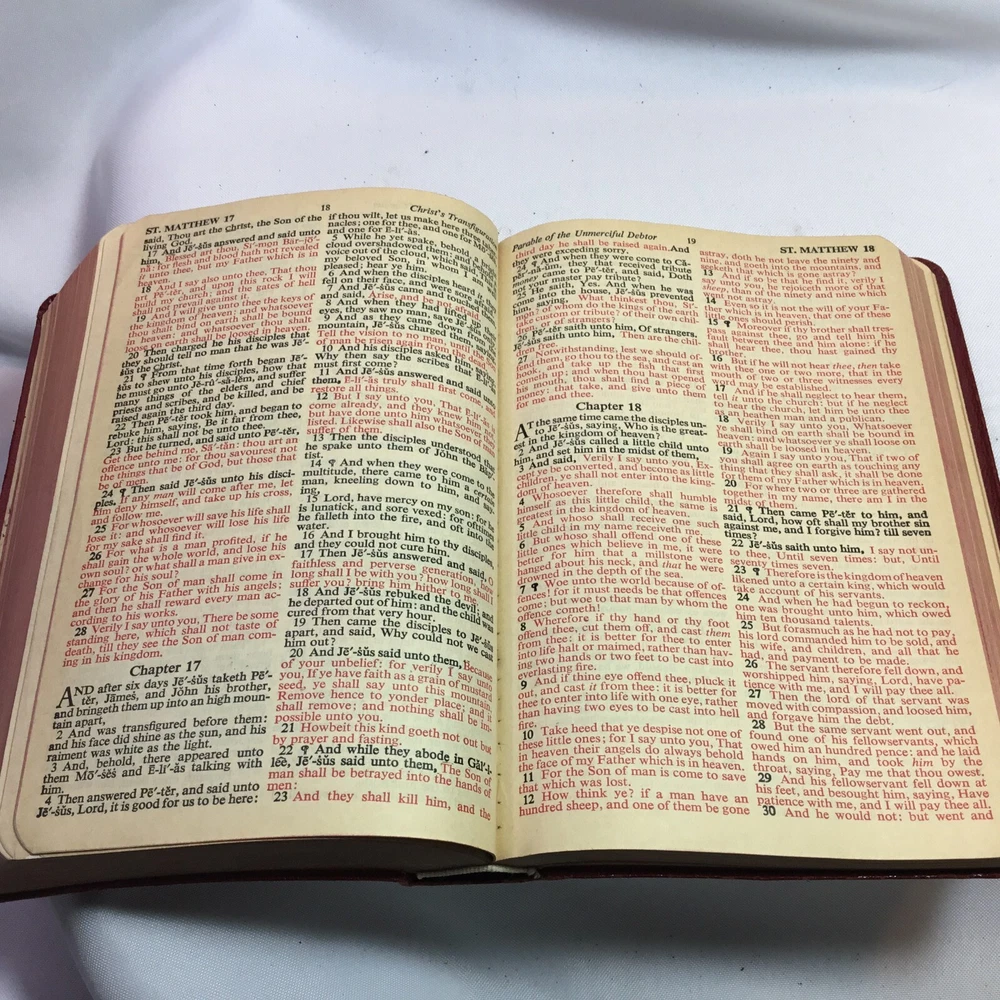 ST. MATTHEW 17
18
Christ's Transfigura
said, Thou art the Christ, the Son of the
living God.
17 And Jē'-ṡŭs answered and said unto
him, Blessed art thou, Sī'-mọn Bär-jō'-
nȧ: for flesh and blood hath not revealed
it unto thee, but my Father which is in
heaven.
18 And I say also unto thee, That thou
art Pē'-tẽr, and upon this rock I will
build my church; and the gates of hell
shall not prevail against it.
19 And I will give unto thee the keys of
the kingdom of heaven: and whatsoever
thou shalt bind on earth shall be bound
in heaven: and whatsoever thou shalt
loose on earth shall be loosed in heaven.
20 Then charged he his disciples that
they should tell no man that he was Jē'-
ṡŭs the Christ.
21 ¶ From that time forth began Jē'-
ṡŭs to shew unto his disciples, how that
he must go unto Jē-rṳ'-sȧ-lĕm, and suffer
many things of the elders and chief
priests and scribes, and be killed, and be
raised again the third day.
22 Then Pē'-tẽr took him, and began to
rebuke him, saying, Be it far from thee,
Lord: this shall not be unto thee.
23 But he turned, and said unto Pē'-tẽr,
Get thee behind me, Sā'-tăn: thou art an
offence unto me: for thou savourest not
the things that be of God, but those that
be of men.
24 ¶ Then said Jē'-ṡŭs unto his disci-
ples, If any man will come after me, let
him deny himself, and take up his cross,
and follow me.
25 For whosoever will save his life shall
lose it: and whosoever will lose his life
for my sake shall find it.
26 For what is a man profited, if he
shall gain the whole world, and lose his
own soul? or what shall a man give in ex-
change for his soul?
27 For the Son of man shall come in
the glory of his Father with his angels;
and then he shall reward every man ac-
cording to his works.
28 Verily I say unto you, There be some
standing here, which shall not taste of
death, till they see the Son of man com-
ing in his kingdom.
Chapter 17
AND after six days Jē'-ṡŭs taketh Pē'-
tẽr, Jāmes, and Jŏhn his brother,
and bringeth them up into an high moun-
tain apart,
2 And was transfigured before them:
and his face did shine as the sun, and his
raiment was white as the light.
3 And, behold, there appeared unto
them Mō'-ṡĕṡ and Ē-lī'-ăs talking with
him.
4 Then answered Pē'-tẽr, and said unto
Jē'-ṡŭs, Lord, it is good for us to be here:
if thou wilt, let us make here three taber-
nacles; one for thee, and one for Mō'-
and one for Ē-lī'-ăs.
5 While he yet spake, behold, a bright
cloud overshadowed them: and behold a
voice out of the cloud, which said, This is
my beloved Son, in whom I am well
pleased; hear ye him.
6 And when the disciples heard it, they
fell on their face, and were sore
7 And Jē'-ṡŭs came and touched them,
and said, Arise, and be not afraid.
8 And when they had lifted up their
eyes, they saw no man, save Jē'-ṡŭs
9 And as they came down from the
mountain, Jē'-ṡŭs charged them, saying,
Tell the vision to no man, until the Son
of man be risen again from the dead.
10 And his disciples asked him, saying,
Why then say the scribes that Ē-lī'-ăs
must first come?
11 And Jē'-ṡŭs answered and said unto
them, Ē-lī'-ăs truly shall first come, and
restore all things.
12 But I say unto you, That Ē-lī'-ăs is
come already, and they knew him not,
but have done unto him whatsoever they
listed. Likewise shall also the Son of man
suffer of them.
13 Then the disciples understood that
he spake unto them of Jŏhn the Băp'-
tist.
14 ¶ And when they were come to the
multitude, there came to him a certain
man, kneeling down to him, and say-
ing,
15 Lord, have mercy on my son: for he
is lunatick, and sore vexed: for ofttimes
he falleth into the fire, and oft into the
water.
16 And I brought him to thy disciples,
and they could not cure him.
17 Then Jē'-ṡŭs answered and said, O
faithless and perverse generation, how
long shall I be with you? how long shall I
suffer you? bring him hither to me.
18 And Jē'-ṡŭs rebuked the devil; and
he departed out of him: and the child was
cured from that very hour.
19 Then came the disciples to Jē'-ṡŭs
apart, and said, Why could not we cast
him out?
20 And Jē'-ṡŭs said unto them, Because
of your unbelief: for verily I say unto
you, If ye have faith as a grain of mustard
seed, ye shall say unto this mountain,
Remove hence to yonder place; and it
shall remove; and nothing shall be im-
possible unto you.
21 Howbeit this kind goeth not out but
by prayer and fasting.
22 ¶ And while they abode in Găl'-ĭ-
lēē, Jē'-ṡŭs said unto them, The Son of
man shall be betrayed into the hands of
men:
23 And they shall kill him, and the
Parable of the Unmerciful Debtor
19
ST. MATTHEW 18
third day he shall be raised again. And
they were exceeding sorry.
24 ¶ And when they were come to Cȧ-
pẽr'-nȧ-ŭm, they that received tribute
money came to Pē'-tẽr, and said, Doth
not your master pay tribute?
25 He saith, Yes. And when he was
come into the house, Jē'-ṡŭs prevented
him, saying, What thinkest thou, Sī'-
mọn? of whom do the kings of the earth
take custom or tribute? of their own chil-
dren, or of strangers?
26 Pē'-tẽr saith unto him, Of strangers.
Jē'-ṡŭs saith unto him, Then are the chil-
dren free.
27 Notwithstanding, lest we should of-
fend them, go thou to the sea, and cast an
hook, and take up the fish that first
cometh up; and when thou hast opened
his mouth, thou shalt find a piece of
money: that take, and give unto them
for me and thee.
Chapter 18
AT the same time came the disciples un-
to Jē'-ṡŭs, saying, Who is the great-
est in the kingdom of heaven?
2 And Jē'-ṡŭs called a little child unto
him, and set him in the midst of them,
3 And said, Verily I say unto you, Ex-
cept ye be converted, and become as little
children, ye shall not enter into the king-
dom of heaven.
4 Whosoever therefore shall humble
himself as this little child, the same is
greatest in the kingdom of heaven.
5 And whoso shall receive one such
little child in my name receiveth me.
6 But whoso shall offend one of these
little ones which believe in me, it were
better for him that a millstone were
hanged about his neck, and that he were
drowned in the depth of the sea.
7 ¶ Woe unto the world because of of-
fences! for it must needs be that offences
come; but woe to that man by whom the
offence cometh!
8 Wherefore if thy hand or thy foot
offend thee, cut them off, and cast them
from thee: it is better for thee to enter
into life halt or maimed, rather than hav-
ing two hands or two feet to be cast into
everlasting fire.
9 And if thine eye offend thee, pluck it
out, and cast it from thee: it is better for
thee to enter into life with one eye, rather
than having two eyes to be cast into hell
fire.
10 Take heed that ye despise not one of
these little ones; for I say unto you, That
in heaven their angels do always behold
the face of my Father which is in heaven.
11 For the Son of man is come to save
that which was lost.
12 How think ye? if a man have an
hundred sheep, and one of them be gone
astray, doth he not leave the ninety and
nine, and goeth into the mountains, and
seeketh that which is gone astray?
13 And if so be that he find it, verily I
say unto you, he rejoiceth more of that
sheep, than of the ninety and nine which
went not astray.
14 Even so it is not the will of your Fa-
ther which is in heaven, that one of these
little ones should perish.
15 ¶ Moreover if thy brother shall tres-
pass against thee, go and tell him his
fault between thee and him alone: if he
shall hear thee, thou hast gained thy
brother.
16 But if he will not hear thee, then take
with thee one or two more, that in the
mouth of two or three witnesses every
word may be established.
17 And if he shall neglect to hear them,
tell it unto the church: but if he neglect
to hear the church, let him be unto thee
as an heathen man and a publican.
18 Verily I say unto you, Whatsoever
ye shall bind on earth shall be bound in
heaven: and whatsoever ye shall loose on
earth shall be loosed in heaven.
19 Again I say unto you, That if two of
you shall agree on earth as touching any
thing that they shall ask, it shall be done
for them of my Father which is in heaven.
20 For where two or three are gathered
together in my name, there am I in the
midst of them.
21 ¶ Then came Pē'-tẽr to him, and
said, Lord, how oft shall my brother sin
against me, and I forgive him? till seven
times?
22 Jē'-ṡŭs saith unto him, I say not un-
to thee, Until seven times: but, Until
seventy times seven.
23 ¶ Therefore is the kingdom of heaven
likened unto a certain king, which would
take account of his servants.
24 And when he had begun to reckon,
one was brought unto him, which owed
him ten thousand talents.
25 But forasmuch as he had not to pay,
his lord commanded him to be sold, and
his wife, and children, and all that he
had, and payment to be made.
26 The servant therefore fell down, and
worshipped him, saying, Lord, have pa-
tience with me, and I will pay thee all.
27 Then the lord of that servant was
moved with compassion, and loosed him,
and forgave him the debt.
28 But the same servant went out, and
found one of his fellowservants, which
owed him an hundred pence: and he laid
hands on him, and took him by the
throat, saying, Pay me that thou owest.
29 And his fellowservant fell down at
his feet, and besought him, saying, Have
patience with me, and I will pay thee all.
30 And he would not: but went and